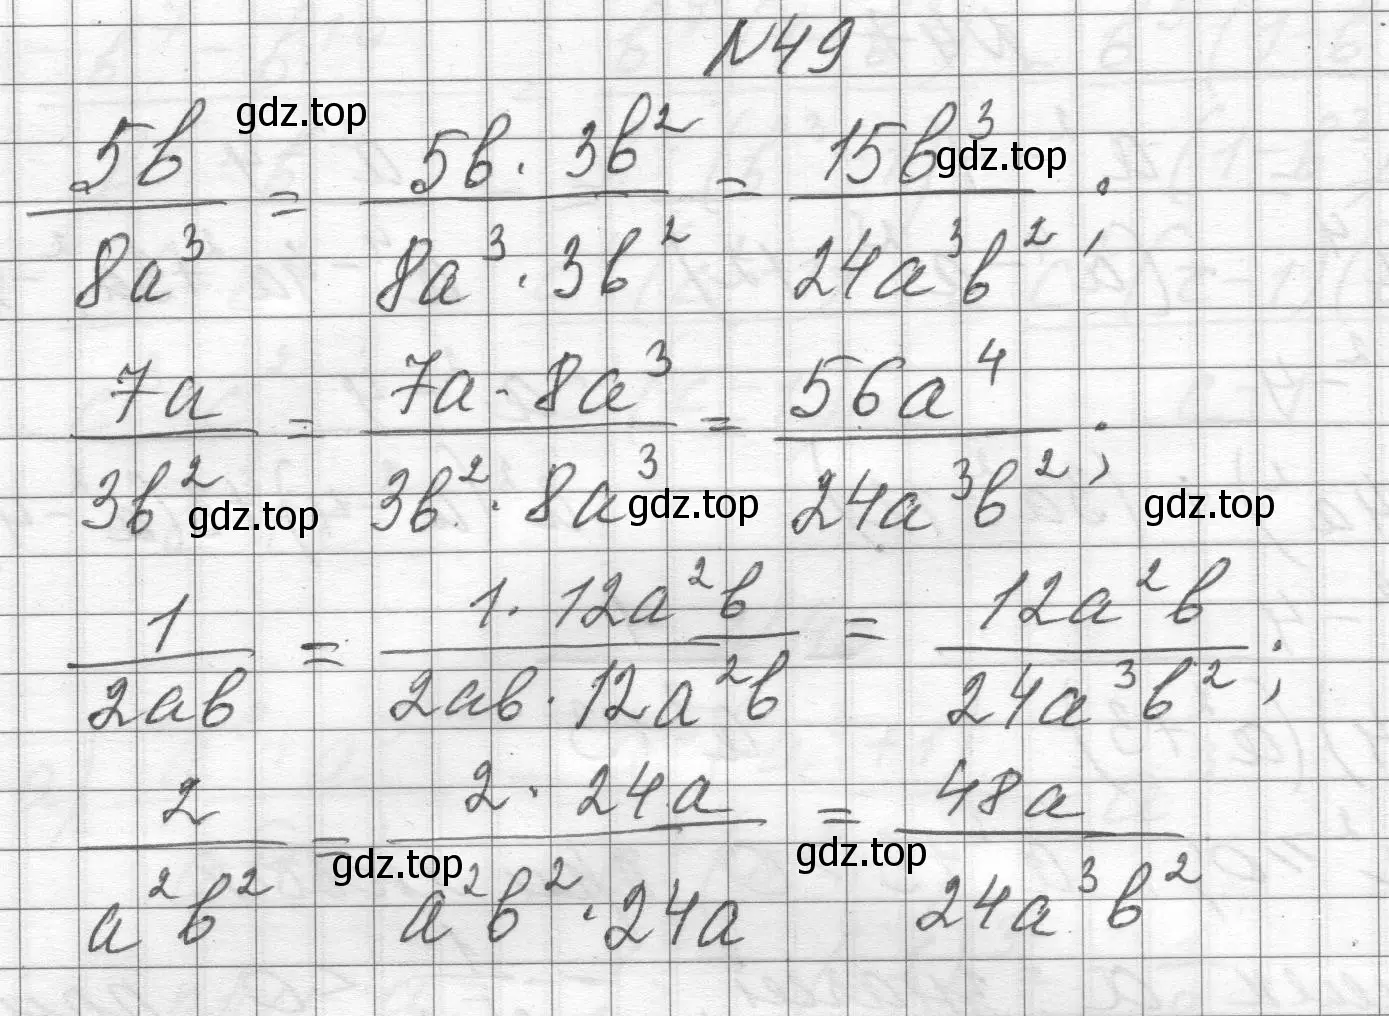 №49
gdz.top
5b/8a³ = 5b · 3b²/8a³ · 3b² = 15b³/24a³b² ;
gdz.top
7a/3b² = 7a · 8a³/3b² · 8a³ = 56a⁴/24a³b² ;
gdz.top gdz.top gdz.top
1/2ab = 1 · 12a²b/2ab · 12a²b = 12a²b/24a³b² ;
2/a²b² = 2 · 24a/a²b² · 24a = 48a/24a³b²
gdz.top gdz.top